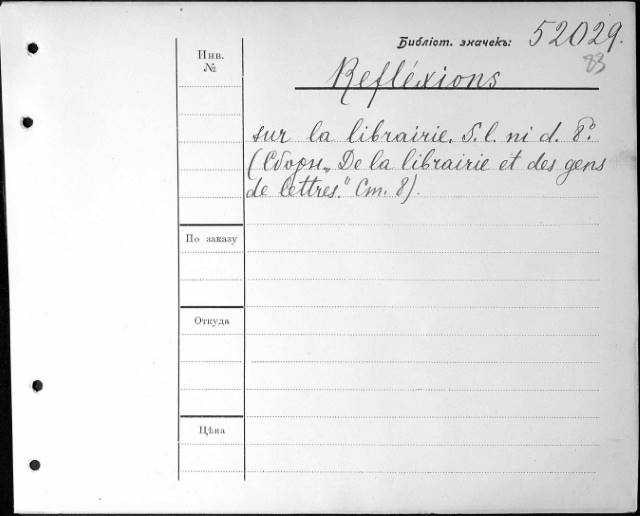 Библіот. значекъ: 52029.
83
Инв.
№
Refléxions
sur la librairie. S. l. ni d. 8º.
(Сборн. „De la librairie et des gens
de lettres." Ст. 8).
По заказу
Откуда
Цѣна